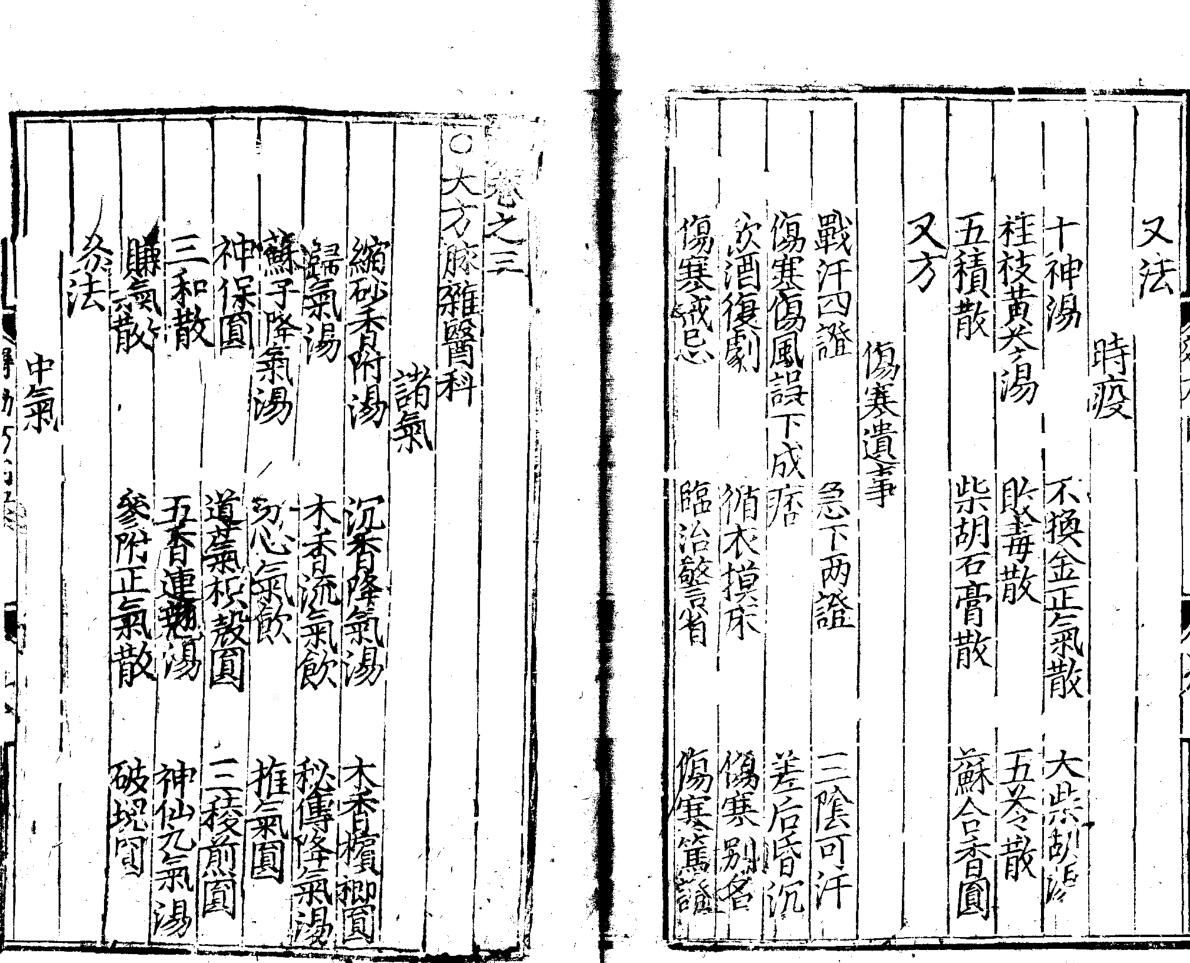 又法
時疫
十神湯 不換金正氣散 大柴胡湯
桂枝黃芩湯 敗毒散 五苓散
五積散 柴胡石膏散 蘇合香圓
又方
傷寒遺事
戰汗四證 急下两證 三陰可汗
傷寒傷風誤下成痞 差后昏沉
飲酒復劇 循衣摸床 傷寒别名
傷寒戒忌 臨治警省 傷寒篤證
卷之三
○大方脉雜醫科
諸氣
縮砂香附湯 沉香降氣湯 木香檳榔圓
歸氣湯 木香流氣飲 秘傳降氣湯
蘇子降氣湯 分心氣飲 推氣圓
神保圓 道氣枳殼圓 三稜煎圓
三和散 五香連翹湯 神仙九氣湯
氣散 參附正氣散 破塊圓
灸法
中氣